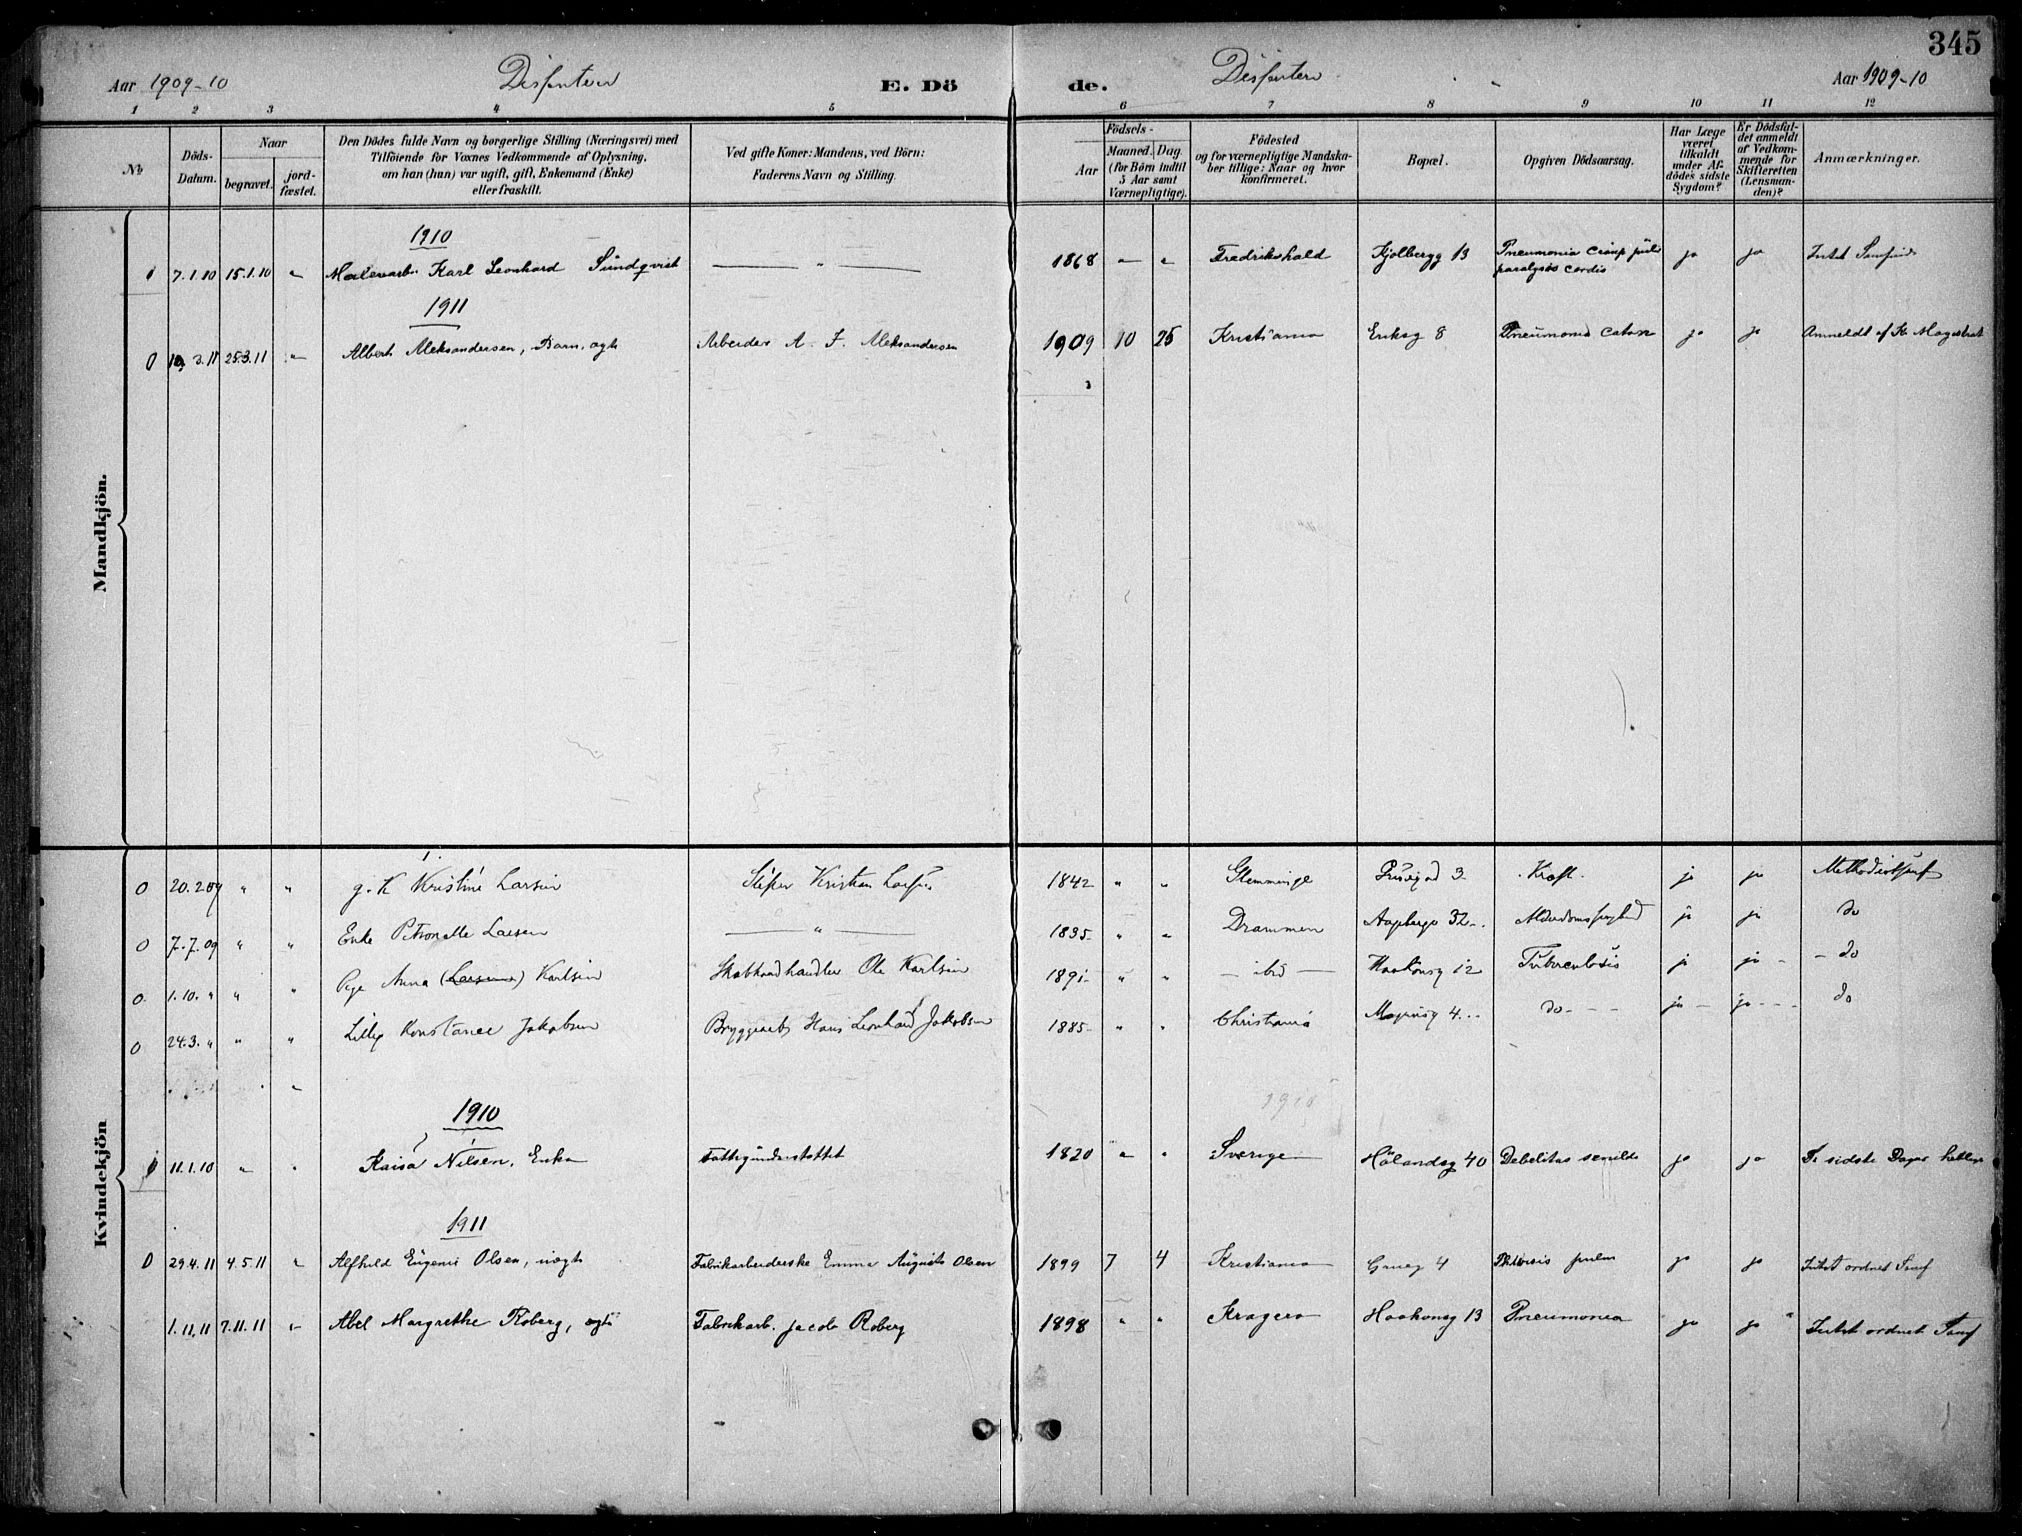 345
Aar 1909-10 Dissentere E. Dö
de. Dissentere Aar 1909-10
1 2 3 4 5 6 7 8 9 10 11 12
No
Döds-Datum.
Naar
begravet.
jord-fæstet.
Den Dödes fulde Navn og borgerlige Stilling (Næringsvei) med
Tilföiende for Voxnes Vedkommende af Oplysning,
om han (hun) var ugift, gift, Enkemand (Enke)
eller fraskilt.
Ved gifte Koner: Mandens, ved Börn:
Faderens Navn og Stilling.
Födsels-
Aar
Maaned. Dag.
(for Börn indtil
5 Aar samt
Værnepligtige).
Födested
og for værnepligtige Mandska-
ber tillige: Naar og hvor
konfirmeret.
Bopæl.
Opgiven Dödsaarsag.
Har Læge
været
tilkaldt
under Af-
dödes sidste
Sygdom?
Er Dödsfal-
det anmeldt
af Vedkom-
mende for
Skifteretten
(Lensman-
den)?
Anmærkninger.
Mandkjön.
1910
7.1.10 15.1.10 " Malerarb. Karl Leonhard Sundqvist — " — 1868 — " Fredrikshald Kjölbergg 13 Pneumonia croup
paralysis cordis ja ja Intet Samfund
1911
0 3.11 25.3.11 " Albert Aleksandersen, Barn, ægte Arbeider A. F. Aleksandersen 1909 10 25 Kristiania Eriksg 8 Pneumonia catarr ja ja Anmeldt af Kr Magistrat
Kvindekjön
0 20.2.09 " " g. K Kristine Larsen Kristian 1842 " " Glemminge 3 Kræft. ja ja
0 7.7.09 " " Enke Petronelle Larsen — " — 1835 " " Drammen 32 ja ja do
0 1.10. " " " Pige Anna (Larsen) Karlsen Ole Karlsen 1891 " " — ibid — Haakonsg 12 Tuberculosis ja ja - do
0 24.3. " " " Lilly Konstance Jakobsen Bryggearb. Hans Leonhard Jakobsen 1885 " " Christiania 4 do - - - ja - ja - - - do
1910
0 11.1.10 " " Kaisa Nilsen, Enke Fattigunderstöttet 1820 " " Sverige Hölandsg 40 Debelitas senilis ja ja De sidste Dages hellige
1911
0 29.4.11 4.5.11 " Alfhild Eugenie Olsen, uægte Fabrikarbeiderske Emma Augusta Olsen 1899 7 4 Kristiania Grueg 4 Phthisis pulm ja ja Intet ordnet Samf
1.11.11 7.11.11 " Abel Margrethe Roberg, ægte Fabrikarb. Jacob Roberg 1898 " " Kragerø Haakonsg 13 Pneumonia ja ja Intet ordnet Samf